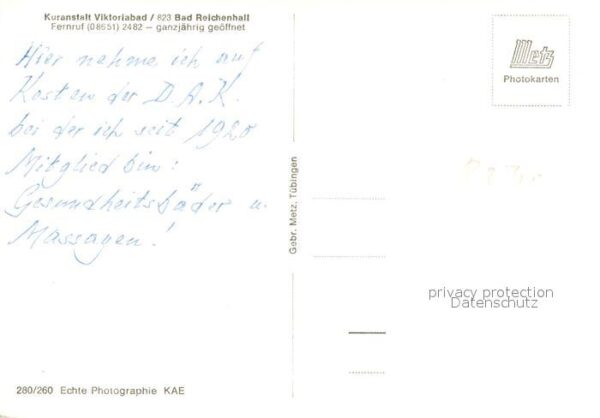 Kuranstalt Viktoriabad / 823 Bad Reichenhall
Fernruf (08651) 2482 – ganzjährig geöffnet
Hier nehme ich auf
Kosten der D.A.K.
bei der ich seit 1920
Mitglied bin:
Gesundheitsbäder u.
Massagen!
Metz
Photokarten
Gebr. Metz, Tübingen
privacy protection
Datenschutz
280/260 Echte Photographie KAE